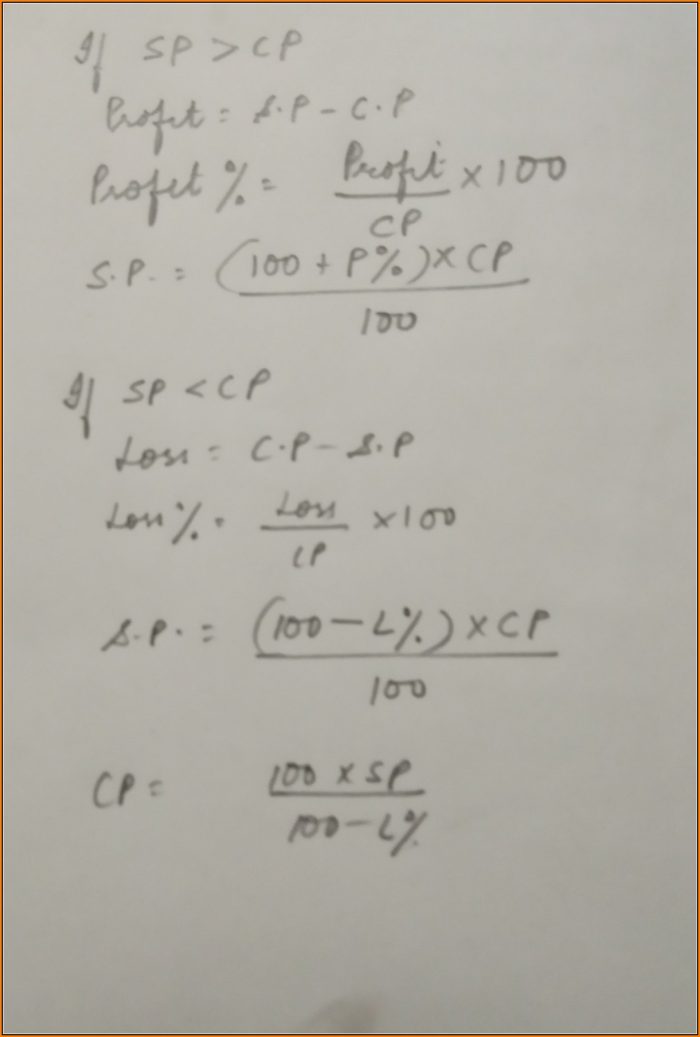 If SP > CP
Profit = S.P - C.P
Profit % = Profit/CP × 100
S.P. = (100 + P%) × CP / 100
If SP < CP
Loss = C.P - S.P
Loss % = Loss/CP × 100
S.P. = (100 - L%) × CP / 100
CP = 100 × SP / 100 - L%